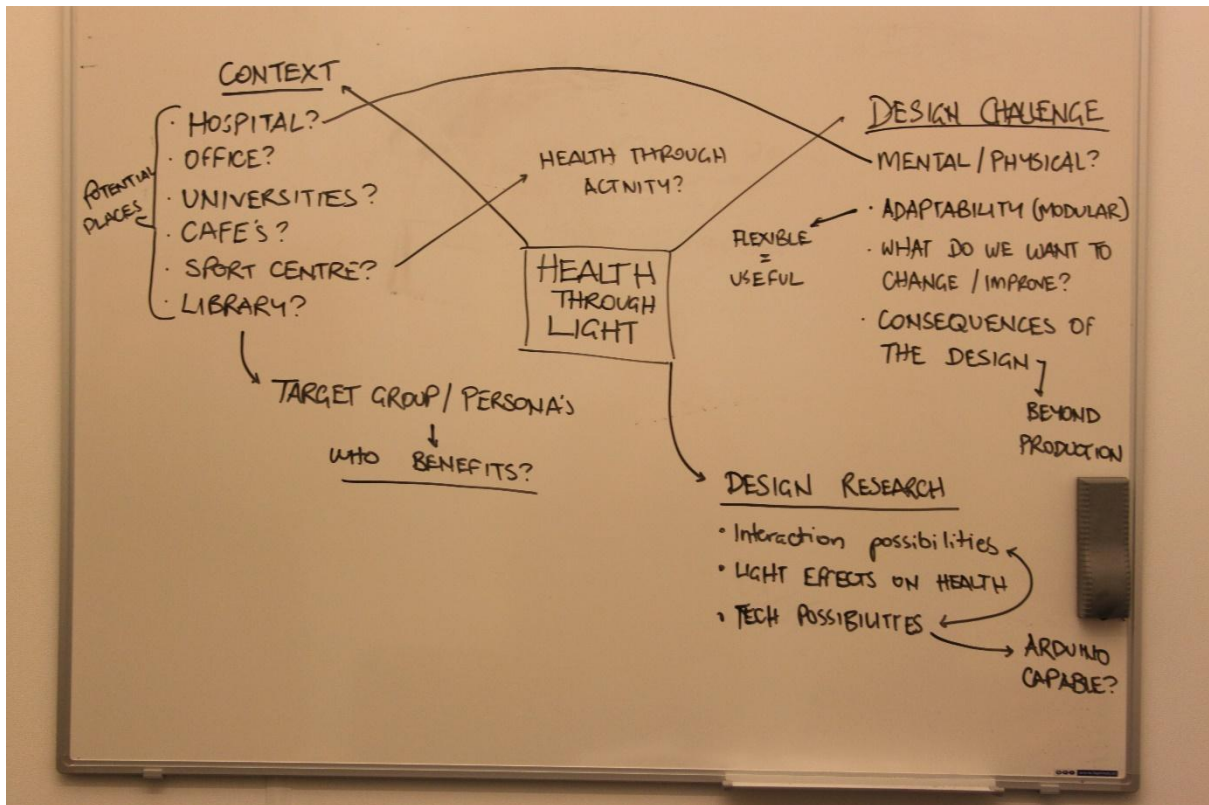 CONTEXT
POTENTIAL
PLACES
· HOSPITAL?
· OFFICE?
· UNIVERSITIES?
· CAFE'S?
· SPORT CENTRE?
· LIBRARY?
TARGET GROUP / PERSONA'S
WHO BENEFITS?
HEALTH THROUGH
ACTIVITY?
HEALTH
THROUGH
LIGHT
DESIGN CHALLENGE
MENTAL / PHYSICAL?
· ADAPTABILITY (MODULAR)
FLEXIBLE
=
USEFUL
· WHAT DO WE WANT TO
CHANGE / IMPROVE?
· CONSEQUENCES OF
THE DESIGN
BEYOND
PRODUCTION
DESIGN RESEARCH
· Interaction possibilities
· LIGHT EFFECTS ON HEALTH
· TECH POSSIBILITIES
ARDUINO
CAPABLE?